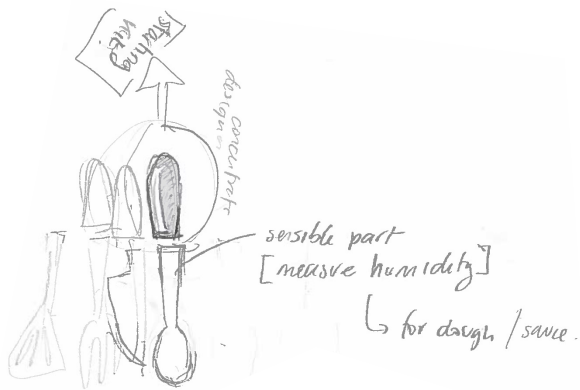 starting
concentrate
design
sensible part
[measure humidity]
for dough / sauce.